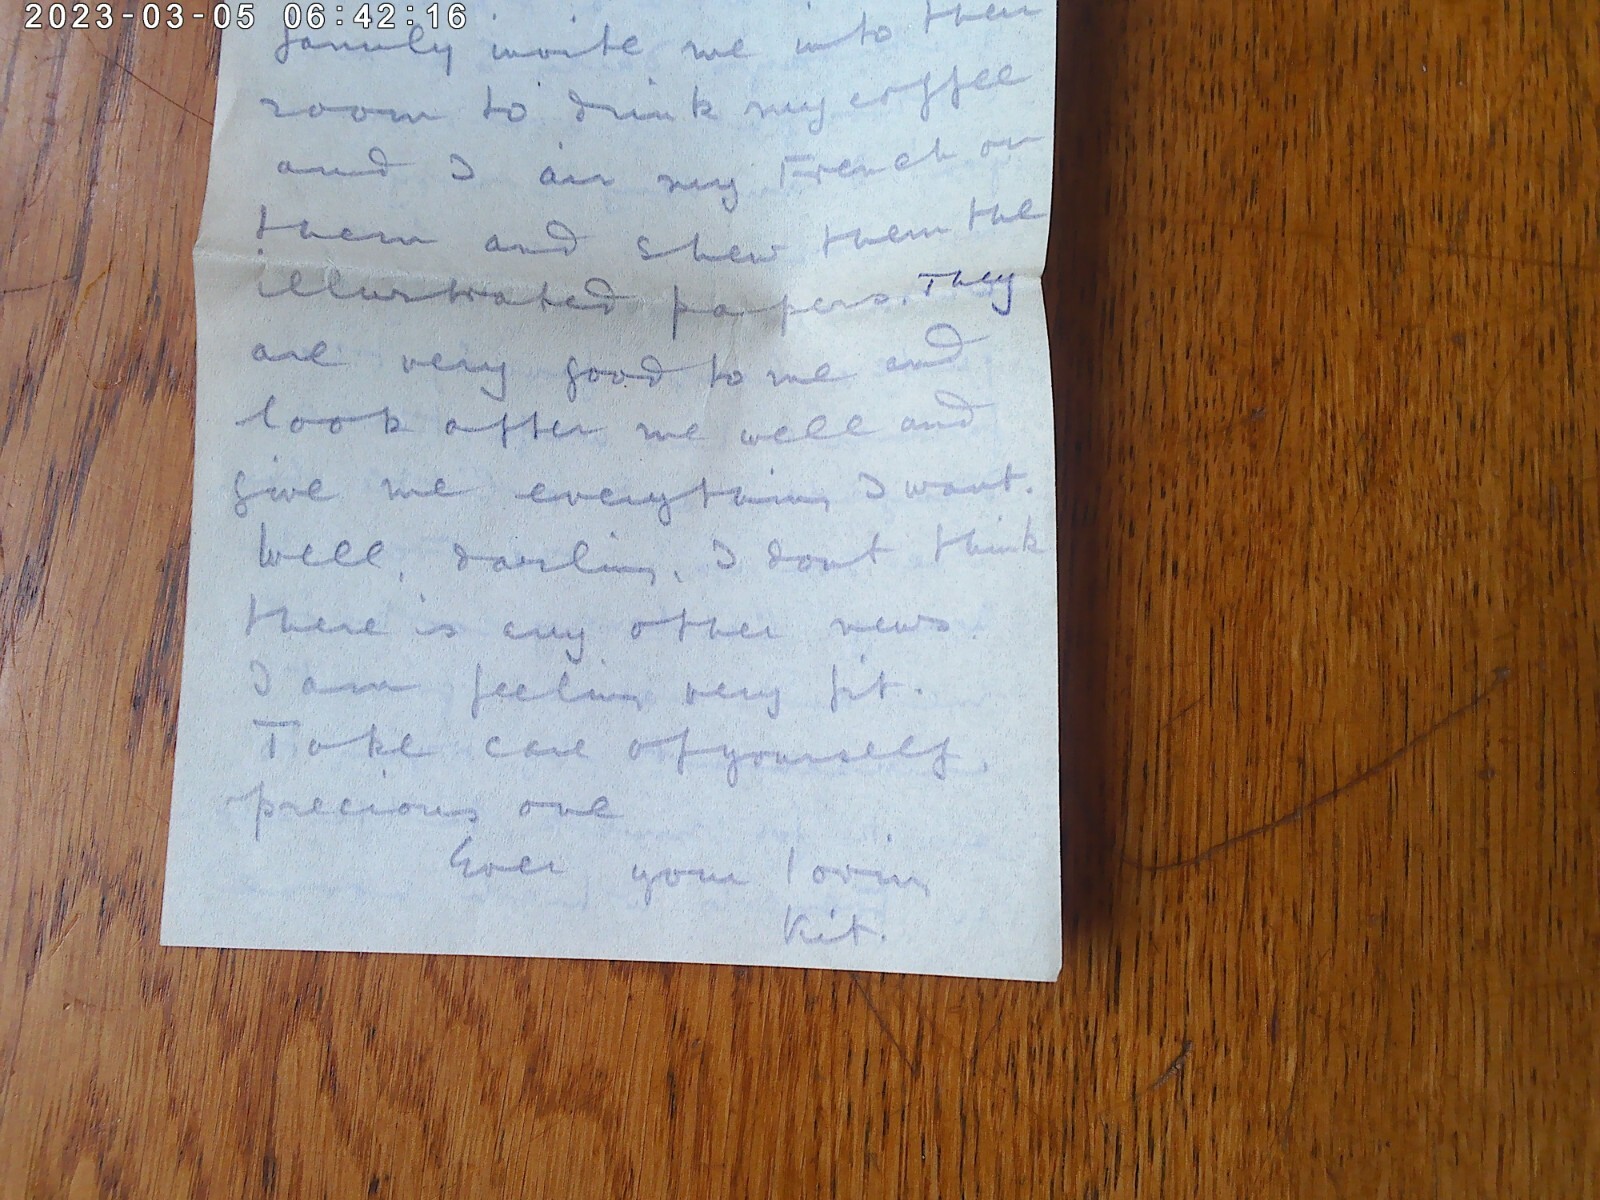 2023-03-05 06:42:16
family invite me into their
room to drink my coffee
and I air my French on
them and shew them the
illustrated papers. They
are very good to me and
look after me well and
give me everything I want.
Well, darling, I dont think
there is any other news.
I am feeling very fit.
Take care of yourself,
precious one
Ever your loving
Kit.